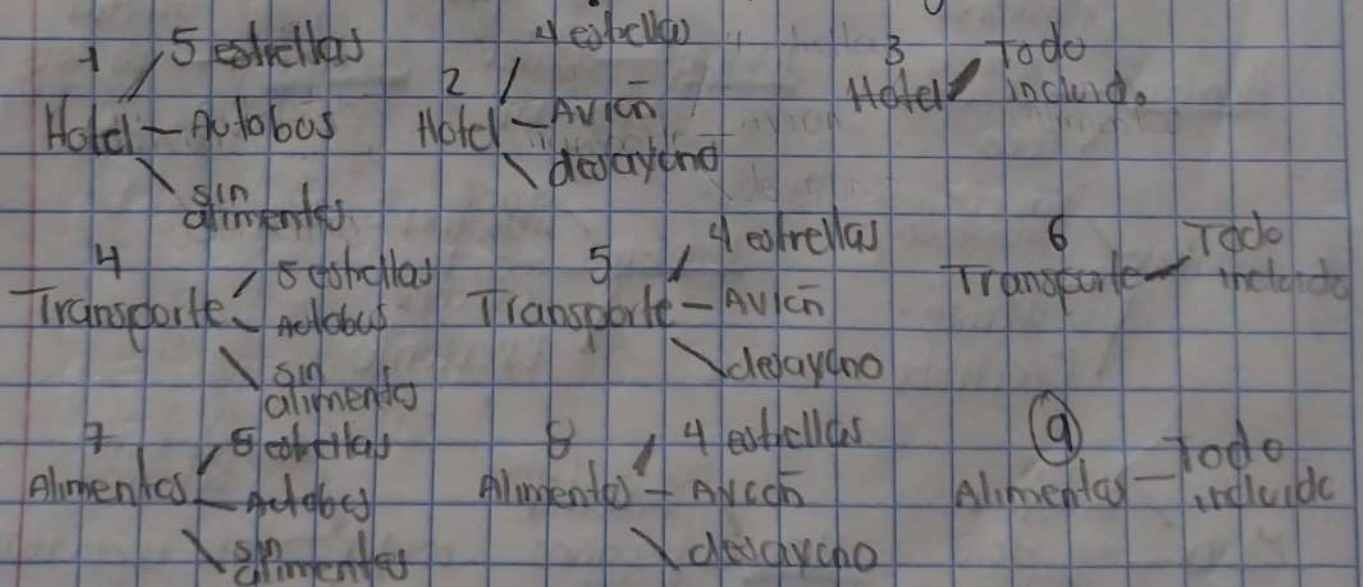 1
5 estrellas
Hotel - Autobus
sin
alimentos
2
4 estrellas
Hotel - Avión
desayuno
3
Hotel
Todo
incluido
4
5 estrellas
Transporte
Autobus
sin
alimento
5
4 estrellas
Transporte - Avión
desayuno
6
Transporte
Todo
incluido
7
5 estrellas
Alimentos
Autobus
sin
alimentos
8
4 estrellas
Alimentos - Avion
desayuno
9
Alimentos -
Todo
incluido